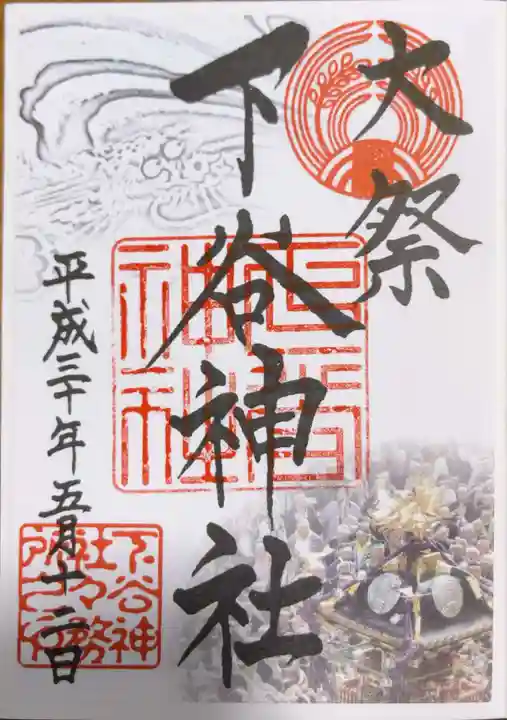 大祭
下谷神社
平成三十年五月十二日
下谷神
社社務
所之印